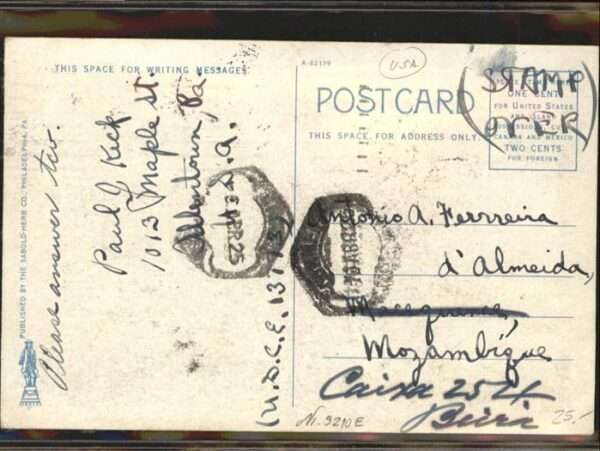 A-82139
USA
THIS SPACE FOR WRITING MESSAGES
POSTCARD
THIS SPACE FOR ADDRESS ONLY
(STAMP
OVER)
ONE CENT
FOR UNITED STATES
AND ISLAND
CANADA AND MEXICO
TWO CENTS
FOR FOREIGN
PUBLISHED BY THE SABOLD-HERB CO., PHILADELPHIA, PA.
Please answer two.
Paul J Keck
1013 Maple St.
Allentown, Pa
U.S.A.
(U.D.C.E. 13173)
ABR 25
Antonio A. Ferrreira
d'Almeida,
Macequence,
Mozambique
Caixa 254
Beira
Nr. 3210E
25.-